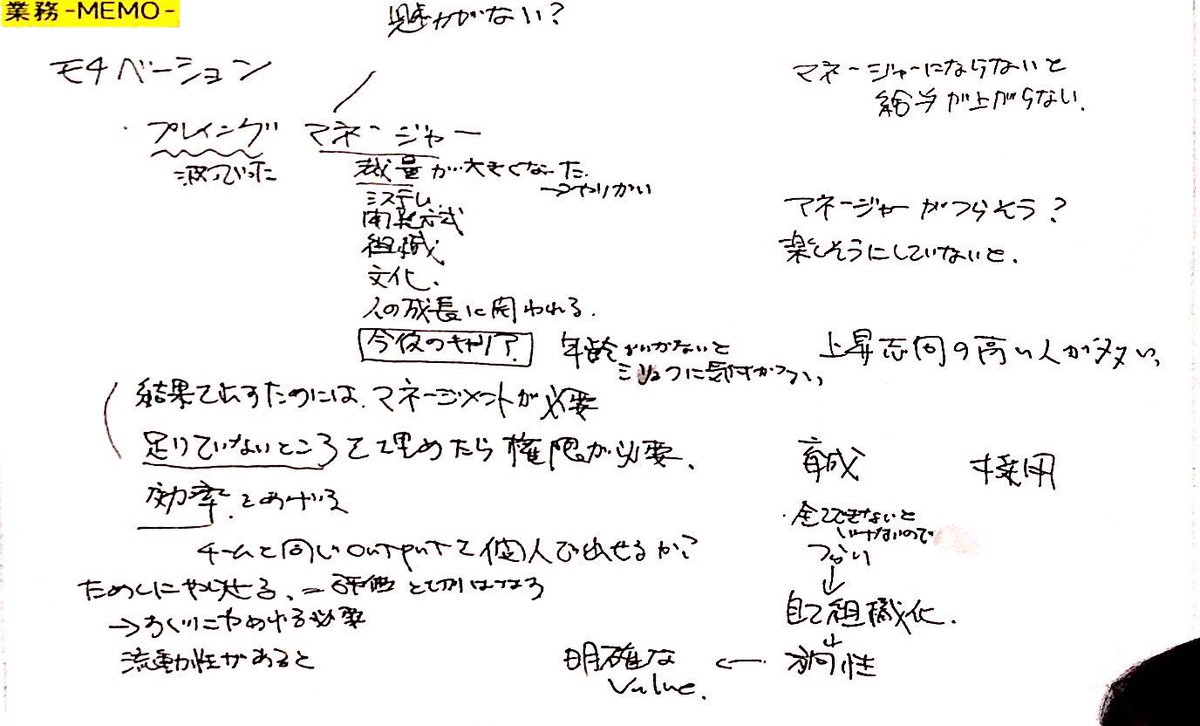 業務-MEMO-
がない?
モチベーション
マネージャーにならないと
給与が上がらない.
・プレイング マネージャー
裁量が大きくなった
→やりがい
システム
開発方式
組織
文化.
人の成長に関われる.
今後のキャリア
マネージャーがつらそう?
楽しそうにしていないと.
年齢がいかないと
に気付かない
上昇志向の高い人が多い.
結果て出すためには、マネージメントが必要
足りていないところを埋めたら権限が必要.
効率をあげる
チームと同じoutputを個人で出せるか?
ためしにやらせる. = 評価と切りはなす
→ 必要
流動性があると
育成
採用
・全てできないと
いけないので
つらい
↓
自己組織化.
↓
方向性
←
明確な
Value.